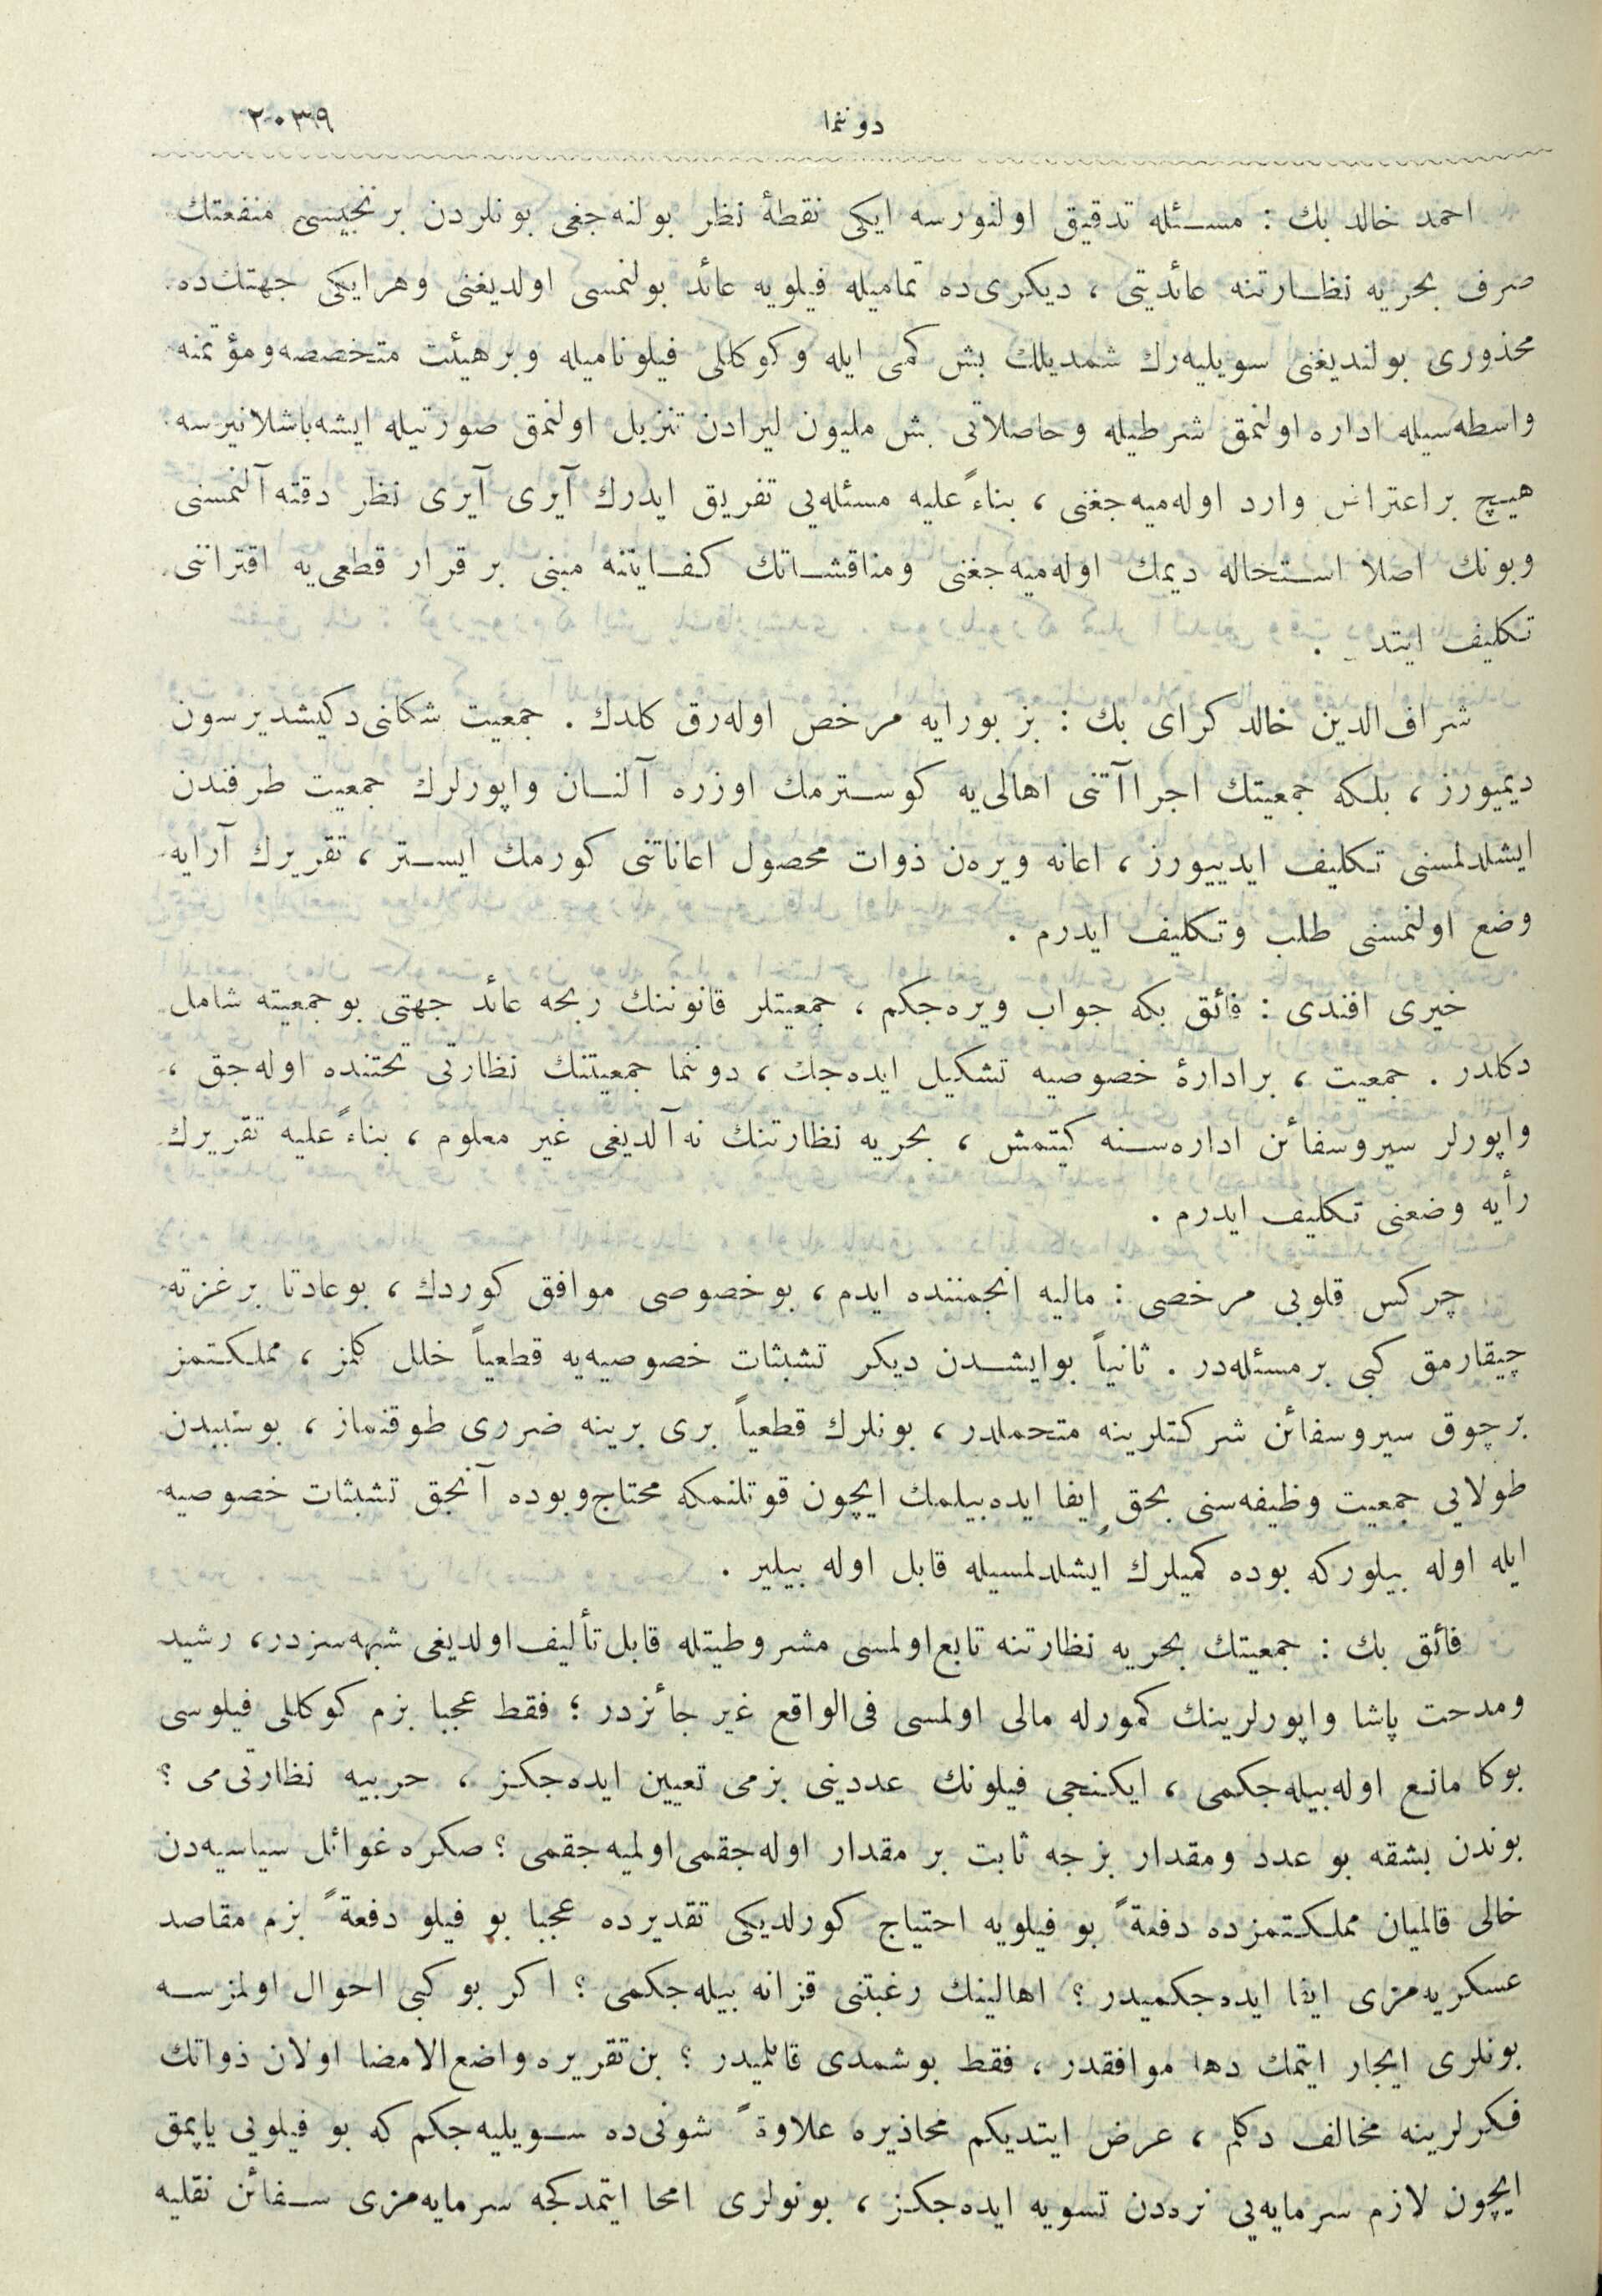 دوننما ٢٠٣٩
احمد خالد بك : مسئله تدقيق اولنورسه ايكى نقطۀ نظر بولنه‌جغى بونلردن برنجيسى منفعتك
صرف بحريه نظارتنه عائديتى ، ديكرى‌ده تماميله فيلويه عائد بولنمسى اولديغنى وهرايكى جهتك‌ده
محذورى بولنديغنى سويليه‌رك شمديلك بش كمى ايله وكوكللى فيلوناميله وبرهيئت متخصصه‌ومؤتمنه
واسطه‌سيله اداره اولنمق شرطيله وحاصلاتى بش مليون ليرادن تنزيل اولنمق صورتيله ايشه‌باشلانيرسه
هيچ براعتراض وارد اوله‌ميه‌جغنى ، بناءً عليه مسئله‌يى تفريق ايدرك آيرى آيرى نظر دقته آلنمسنى
وبونك اصلا استحاله ديمك اوله‌ميه‌جغنى ومناقشاتك كفايتنه مبنى بر قرار قطعى‌يه اقتراننى
تكليف ايتدى .
شراف‌الدين خالد كراى بك : بز بورايه مرخص اوله‌رق كلدك . جمعيت شكلنى‌دكيشديرسون
ديميورز ، بلكه جمعيتك اجراآتنى اهالى‌يه كوسترمك اوزره آلنان واپورلرك جمعيت طرفندن
ايشلدلمسنى تكليف ايدييورز ، اعانه ويره‌ن ذوات محصول اعاناتنى كورمك ايستر ، تقريرك آرايه
وضع اولنمسنى طلب وتكليف ايدرم .
خيرى افندى : فائق بكه جواب ويره‌جكم ، جمعيتلر قانوننك ربحه عائد جهتى بوجمعيته شامل
دكلدر . جمعيت ، برادارۀ خصوصيه تشكيل ايده‌جك ، دوننما جمعيتنك نظارتى تحتنده اوله‌جق ،
واپورلر سيروسفائن اداره‌سنه كيتمش ، بحريه نظارتنك نه‌آلديغى غير معلوم ، بناءً عليه تقريرك
رأيه وضعنى تكليف ايدرم .
چركس قلوبى مرخصى : ماليه انجمننده ايدم ، بوخصوصى موافق كوردك ، بوعادتا برغزته
چيقارمق كبى برمسئله‌در . ثانياً بوايشدن ديكر تشبثات خصوصيه‌يه قطعياً خلل كلمز ، مملكتمز
برچوق سيروسفائن شركتلرينه متحملدر ، بونلرك قطعياً برى برينه ضررى طوقنماز ، بوسببدن
طولايى جمعيت وظيفه‌سنى بحقٍ إيفا ايده‌بيلمك ايچون قوتلنمكه محتاج‌وبوده آنجق تشبثات خصوصيه
ايله اوله بيلوركه بوده كميلرك إيشلدلمسيله قابل اوله بيلير .
فائق بك : جمعيتك بحريه نظارتنه تابع‌اولمسى مشروطيتله قابل‌تأليف‌اولديغى شبهه‌سزدر، رشيد
ومدحت پاشا واپورلرينك كمورله مالى اولمسى فى‌الواقع غير جائزدر ؛ فقط عجبا بزم كوكللى فيلوسى
بوكا مانع اوله‌بيله‌جكمى ، ايكنجى فيلونك عددينى بزمى تعيين ايده‌جكز ، حربيه نظارتى‌مى ؟
بوندن بشقه بو عدد ومقدار بزجه ثابت بر مقدار اوله‌جقمى‌اولميه‌جقمى ؟ صكره غوائل سياسيه‌دن
خالى قالميان مملكتمزده دفعةً بو فيلويه احتياج كورلديكى تقديرده عجبا بو فيلو دفعةً بزم مقاصد
عسكريه‌مزى ايفا ايده‌جكميدر ؟ اهالينك رغبتنى قزانه بيله‌جكمى ؟ اكر بو كبى احوال اولمزسه
بونلرى ايجار ايتمك دها موافقدر ، فقط بوشمدى قابلميدر ؟ بن‌تقريره واضع‌الامضا اولان ذواتك
فكرلرينه مخالف دكلم ، عرض ايتديكم محاذيره علاوةً شونى‌ده سويليه‌جكم كه بو فيلويى ياپمق
ايچون لازم سرمايه‌يى نره‌دن تسويه ايده‌جكز ، بونولرى امحا ايتمدكجه سرمايه‌مزى سفائن نقليه